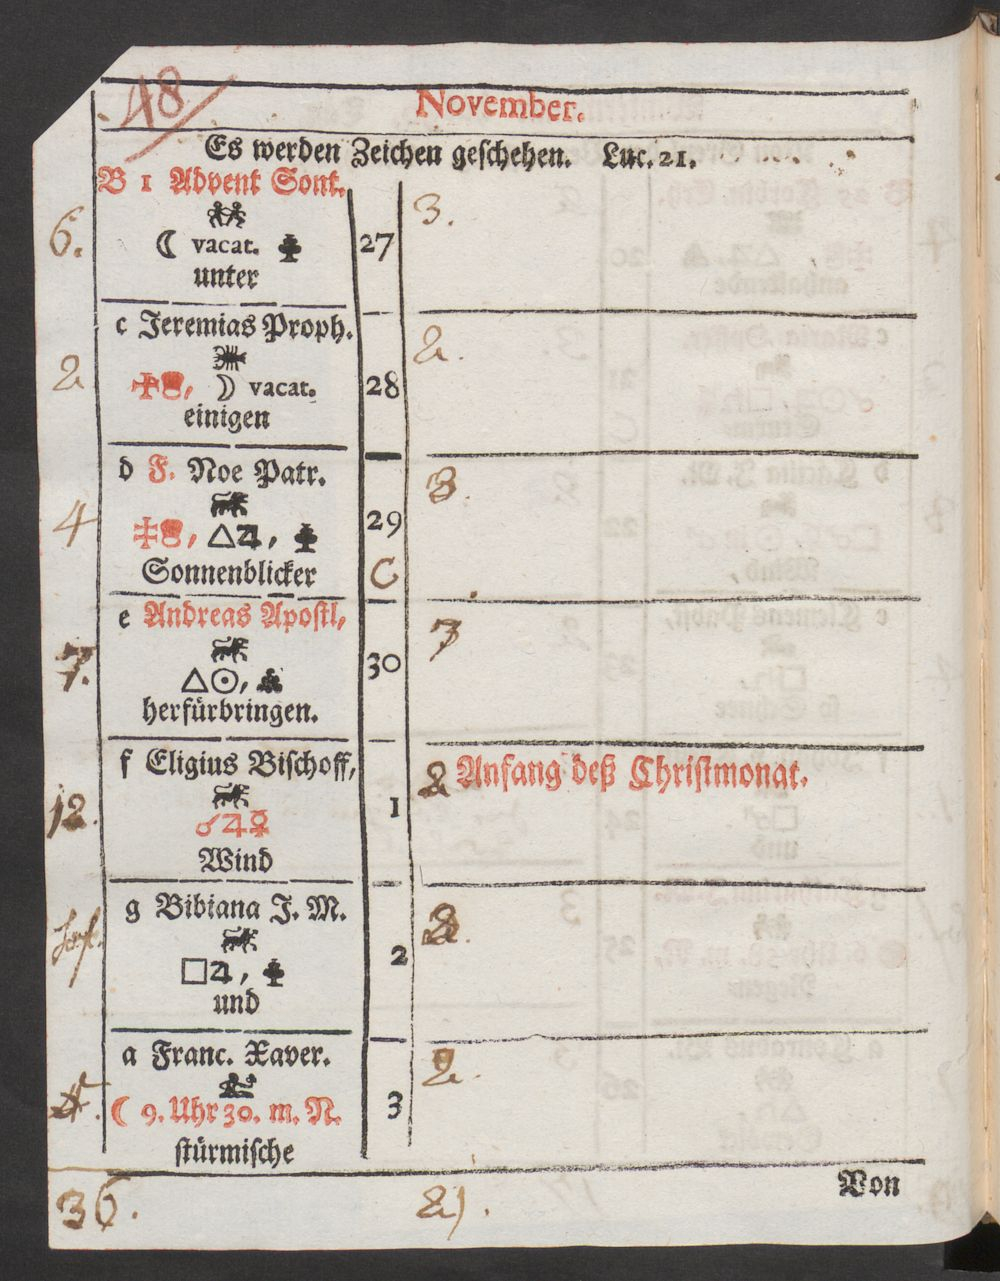 48
November.
Es werden Zeichen geschehen. Luc. 21.
B 1 Advent Sont.
6.
☾ vacat.
27
3.
unter
c Jeremias Proph.
2
☽ vacat.
28
2.
einigen
d F. Noe Patr.
4
△♃,
29
3.
Sonnenblicker
C
e Andreas Apostl,
7.
△☉,
30
3
herfürbringen.
f Eligius Bischoff,
2 Anfang deß Christmonat.
12.
1
☌♃♀
Wind
g Bibiana J. M.
2.
□♃,
2
und
a Franc. Xaver.
2.
4.
☾ 9. Uhr 30. m. N.
3
stürmische
Von
36.
21.